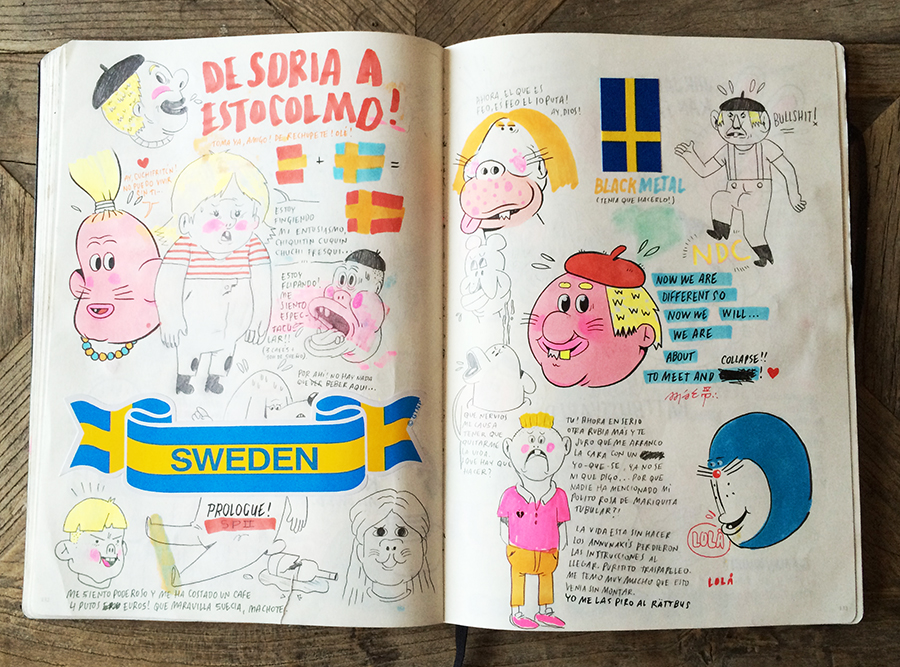 DE SORIA A
ESTOCOLMO!
TOMA YA, AMIGO! DESCÁCHOPETE! OLÉ!
NO PUEDO VIVIR
SIN TI
ESTOY
FINGIENDO
MI ENTUSIASMO,
CHIQUITIN CUQUIN
CHUCHI PRESQUI...
+
=
ESTOY
FLIPANDO!
ME
SIENTO
ESPEC-
TACU-
LAR!!
POR AHÍ! NO HAY NADA
QUE DER BEBER AQUI...
SWEDEN
PROLOGUE!
SPII
ME SIENTO PODEROSO Y ME HA COSTADO UN CAFE
4 PUTOS EUROS! QUE MARAVILLA SUECIA, MACHOTE
AHORA, EL QUE ES
FEO, ES FEO EL IOPUTA!
AY, DIOS!
BLACKMETAL
(TENIA QUE HACERLO!)
BULLSHIT!
NDC
NOW WE ARE
DIFFERENT SO
NOW WE WILL...
WE ARE
ABOUT COLLAPSE!!
TO MEET AND !
QUE NERVIOS
ME CAUSA
TENER QUE
QUITARME
LA VIDA.
QUE HAY QUE
HACER?
TU! AHORA EN SERIO
OTRA RUBIA MAS Y TE
JURO QUE ME ARRANCO
LA CARA CON UN
YO-QUE-SE. YA NO SE
NI QUE DIGO... POR QUE
NADIE HA MENCIONADO MI
POLITO ROSA DE MARIQUITA
TUBULAR?!
LA VIDA ESTA SIN HACER
LOS ANNUNAKIS PERDIERON
LAS INSTRUCCIONES AL
LLEGAR. PURITITO TRAIPAPLLEO.
ME TEMO MUY MUCHO QUE ESTO
VENIA SIN MONTAR.
YO ME LAS PIRO AL RÄTTBUS
LOLÁ
LOLÁ